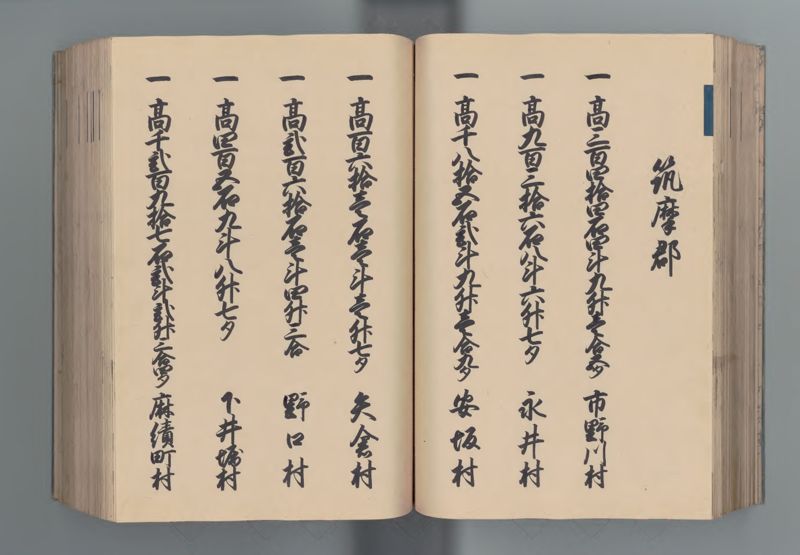 筑摩郡
一高三百四拾四石四斗九升壱合五夕 市野川村
一高九百三拾六石八斗六升七夕 永井村
一高千八拾五石弐斗九升壱合九夕 安坂村
一高百六拾壱石壱斗壱升七夕 矢倉村
一高弐百六拾石壱斗四升三合 野口村
一高四百五石九斗八升七夕 下井堀村
一高千弐百九拾七石弐斗弐升三合四夕 麻績町村